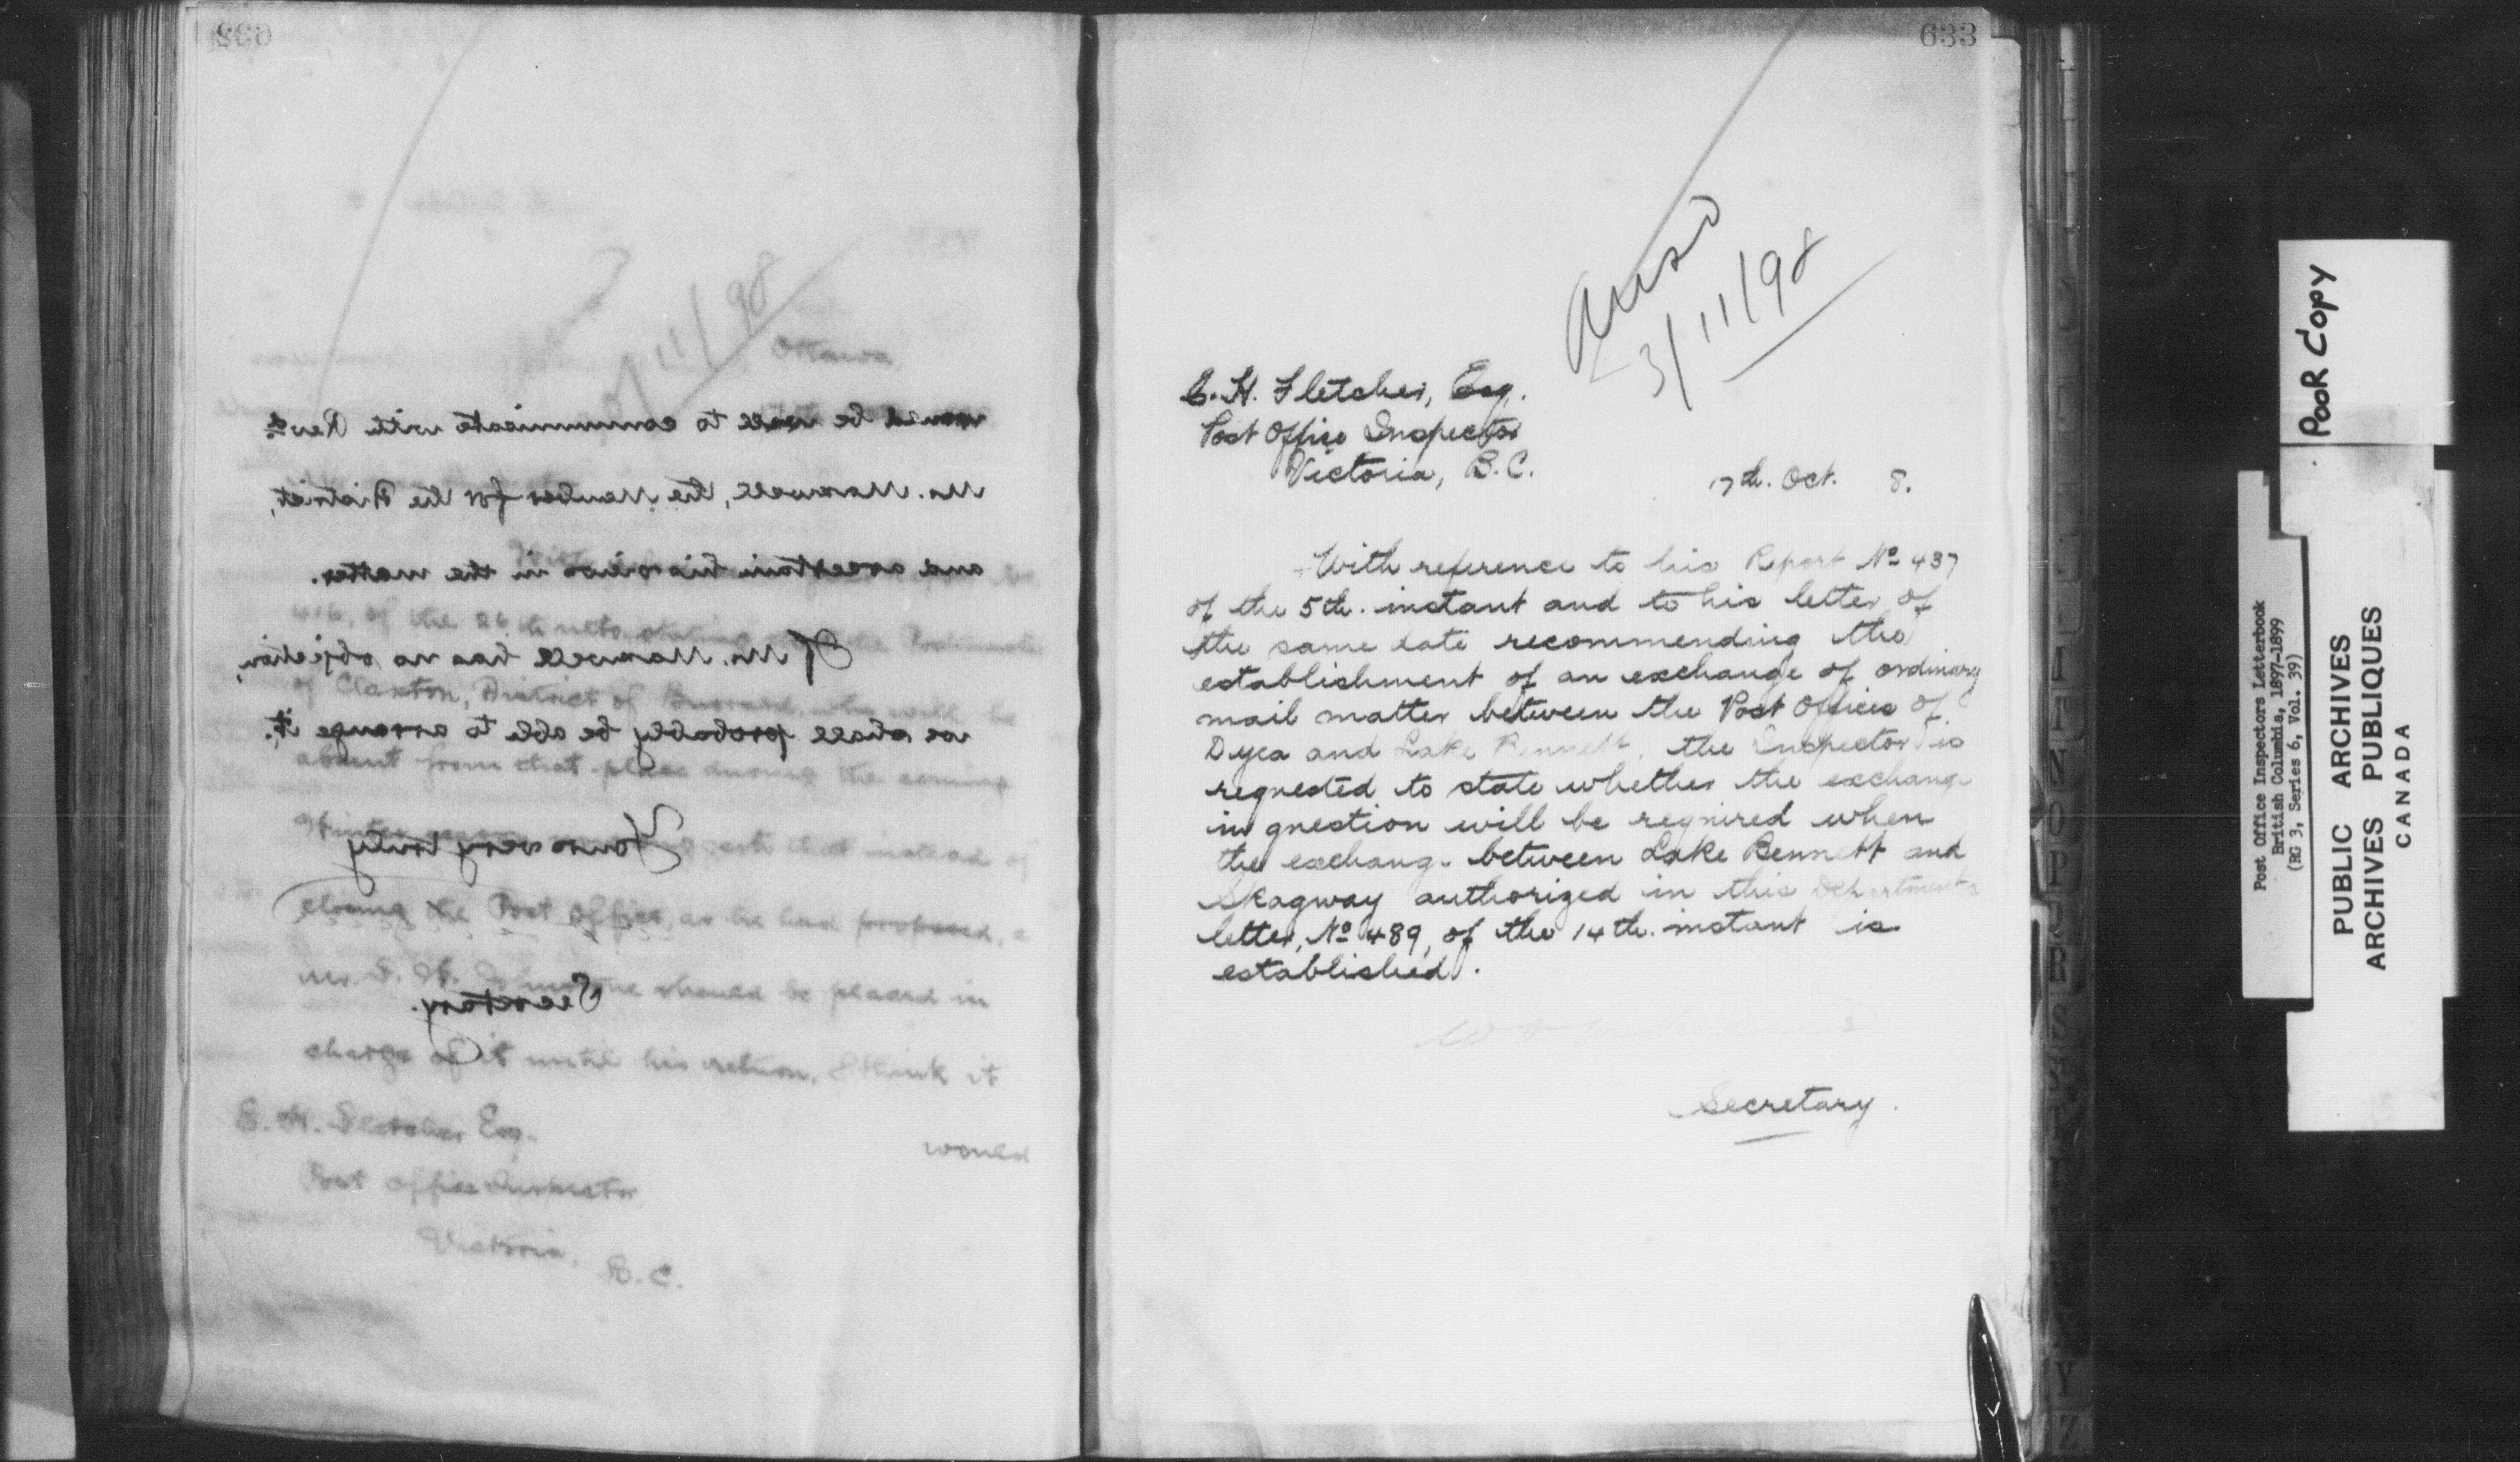 would be well to communicate with Revd.
Mr. Maxwell, the Member for the District,
and ascertain his views in the matter.
If Mr. Maxwell has no objection,
we shall probably be able to arrange it.
Yours very truly
Secretary.
Ottawa
11/98
416, of the 26th ulto. stating
of Claxton, District of Burrard, who will be
absent from that place during the coming
that instead of
closing the Post Office, as he had proposed, a
should be placed in
charge of it until his return, I think it
would
E. H. Fletcher Esq.
Post Office Inspector,
Victoria,
B.C.
633
Ansd
3/11/98
E. H. Fletcher, Esq.
Post Office Inspector
Victoria, B.C.
17th. Oct. 8.
With reference to his Report No 437
of the 5th. instant and to his letter of
the same date recommending the
establishment of an exchange of ordinary
mail matter between the Post Offices of
Dyea and Lake Bennett, the Inspector is
requested to state whether the exchange
in question will be required when
the exchange between Lake Bennett and
Skagway authorized in this Departments
letter, No 489, of the 14th. instant is
established.
Secretary.
Poor Copy
Post Office Inspectors Letterbook
British Columbia, 1897-1899
(RG 3, Series 6, Vol. 39)
PUBLIC ARCHIVES
ARCHIVES PUBLIQUES
CANADA
I
F
N
O
P
R
S
T
Y
Z